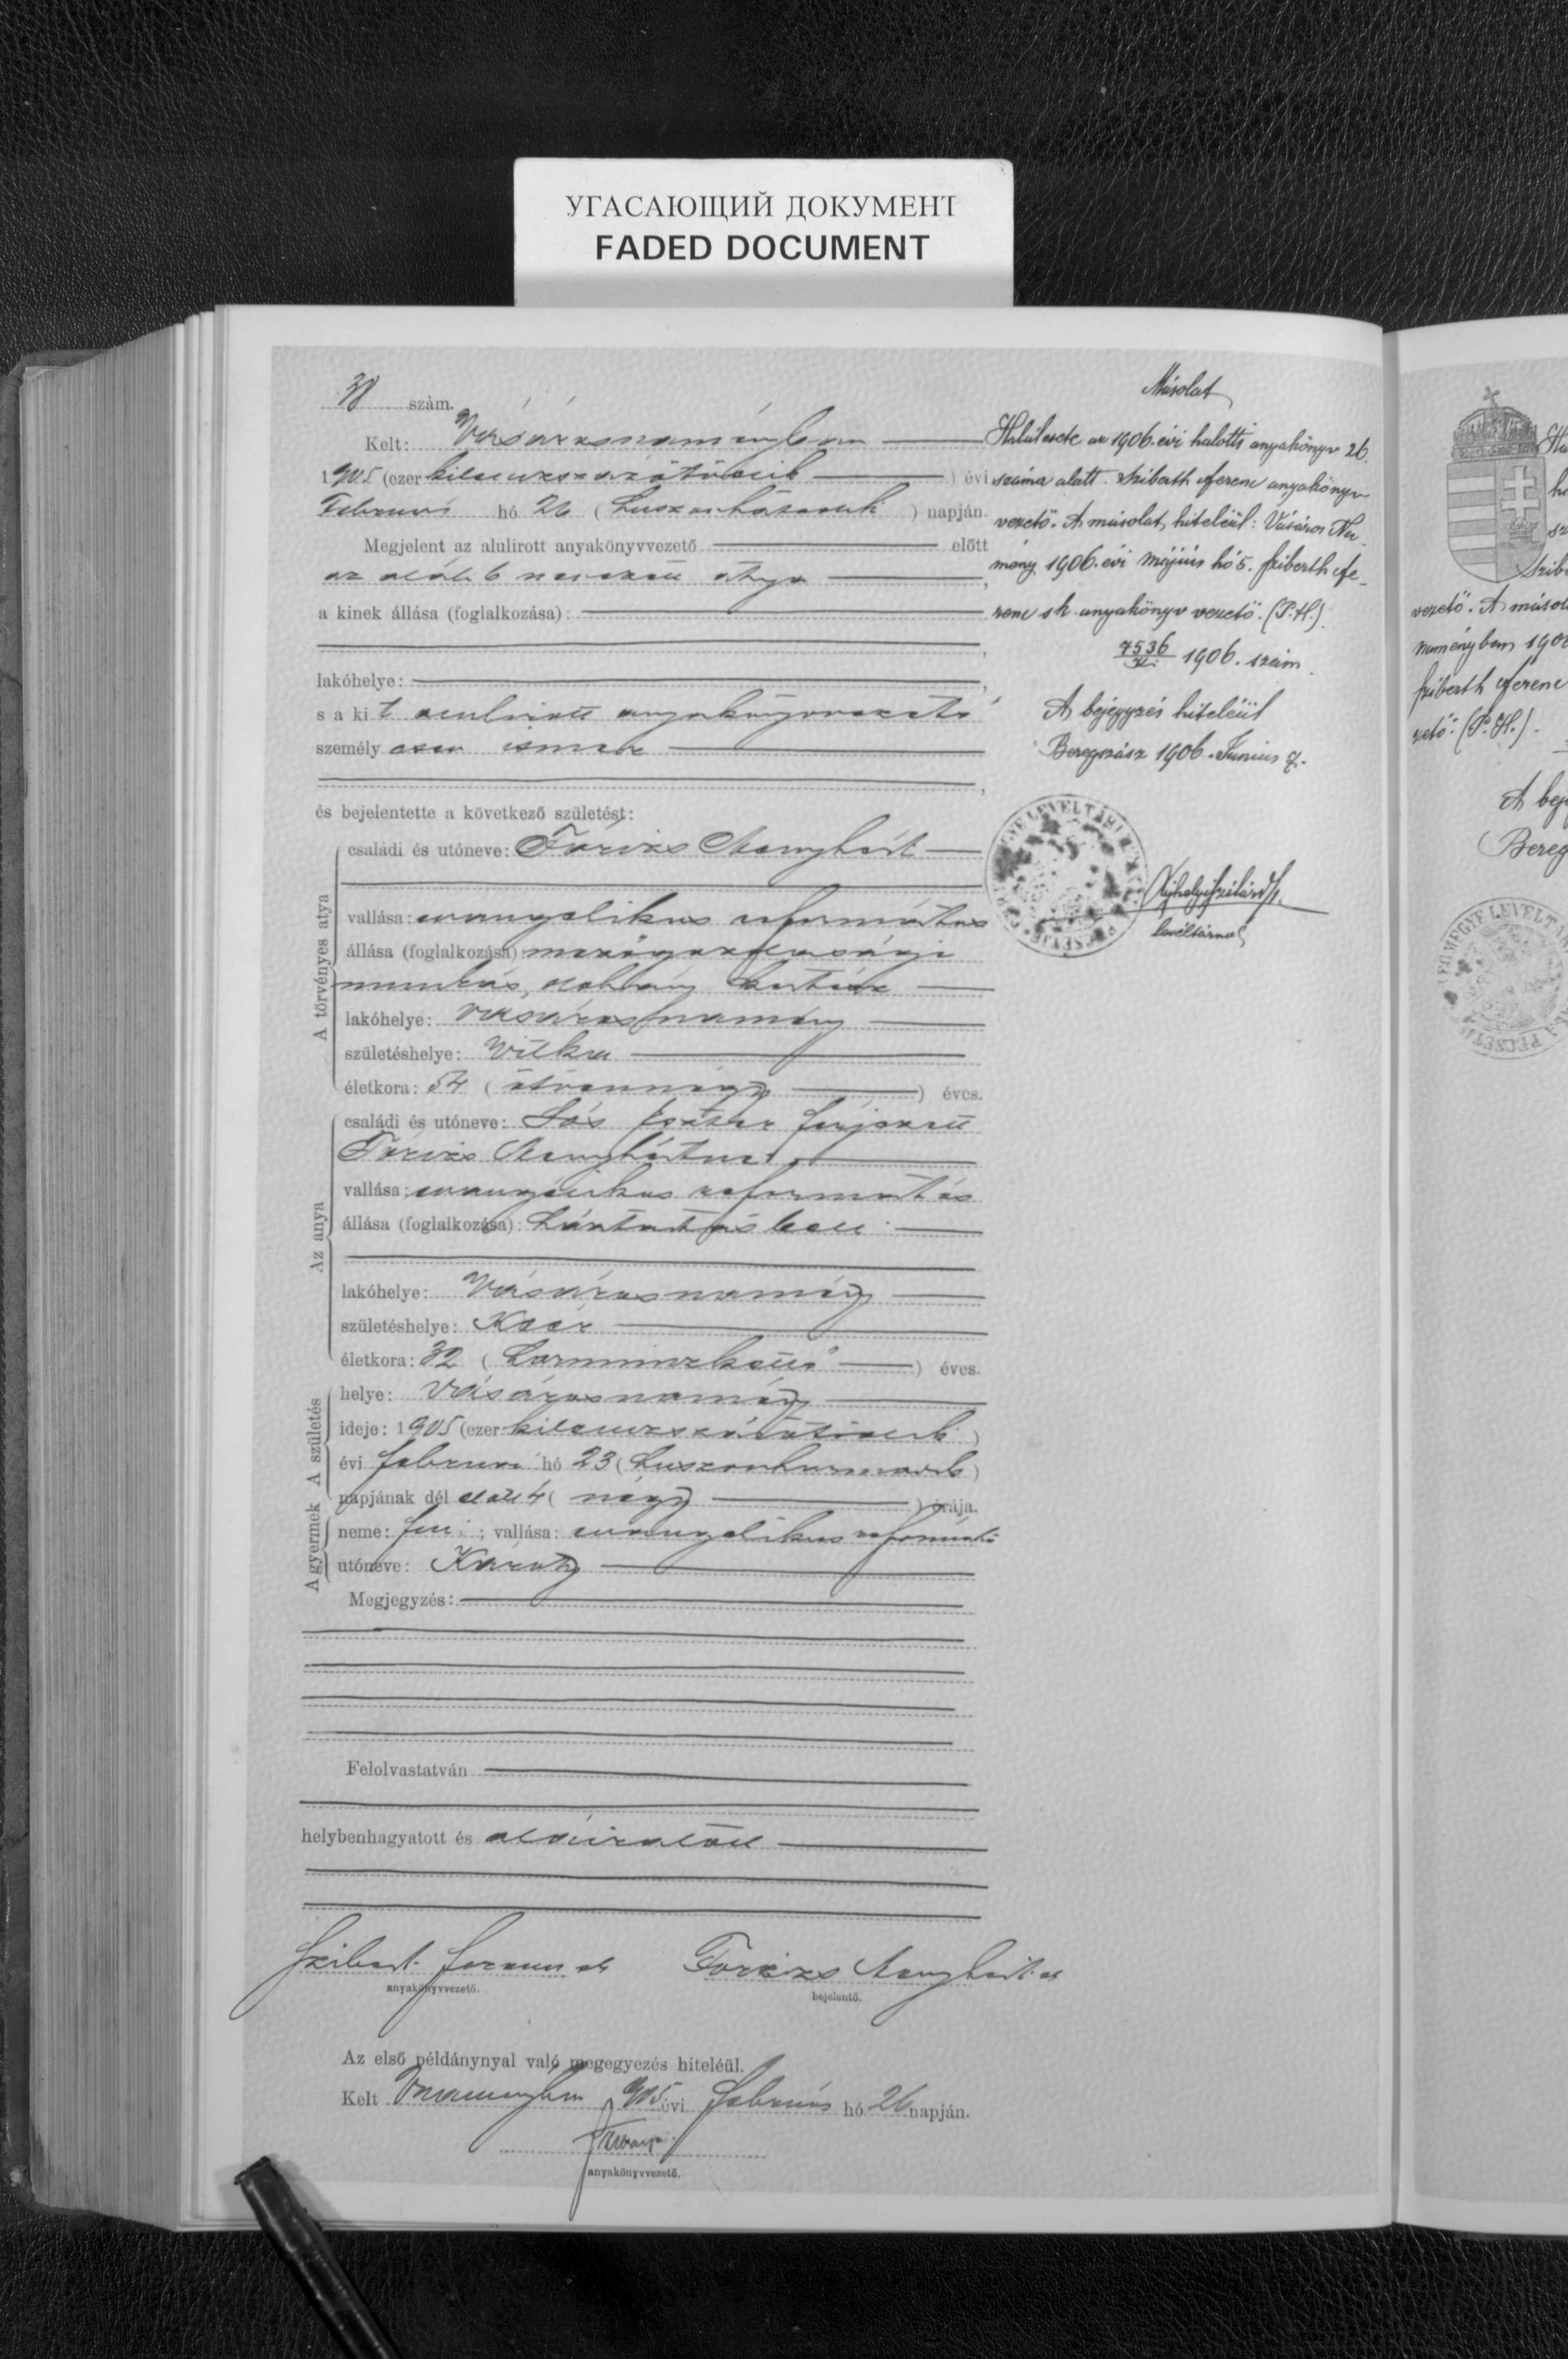 УГАСАЮЩИЙ ДОКУМЕНТ
FADED DOCUMENT
38 szám.
Kelt: Vásárosnaményban
1905 (ezer kilenczszázötödik) évi
Február hó 26 (huszonhatodik) napján.
Megjelent az alulirott anyakönyvvezető előtt
az alább nevezett atya,
a kinek állása (foglalkozása):
lakóhelye:
s a kit alulirott anyakönyvvezető
személyesen ismer
és bejelentette a következő születést:
A törvényes atya
családi és utóneve: Menyhért
vallása: evangelikus református
állása (foglalkozása) mezőgazdasági
munkás, dohány kertész
lakóhelye: Vásárosnamény
születéshelye: Vitka
életkora: 54 (ötvennégy) éves.
Az anya
családi és utóneve: Eszter férjezett
Menyhértné
vallása: evangelikus református
állása (foglalkozása): háztartásbeli
lakóhelye: Vásárosnamény
születéshelye:
életkora: 32 (harminczkettő) éves.
A születés
helye: Vásárosnamény
ideje: 1905 (ezer kilenczszázötödik)
évi február hó 23 (huszonharmadik)
napjának dél előtt 4 (négy) órája.
A gyermek
neme: fiu; vallása: evangelikus református
utóneve: Károly
Megjegyzés:
Felolvastatván
helybenhagyatott és aláiratott
Szibert Ferencz sk
anyakönyvvezető.
Menyhért sk
bejelentő.
Az első példánynyal való megegyezés hiteléül.
Kelt 905 évi február hó 26 napján.
anyakönyvvezető.
Másolat
Halálesete az 1906. évi halotti anyakönyv 26.
száma alatt. Sziberth Ferenc anyakönyv
vezető. A másolat hiteléül: Vásáros Na-
mény 1906. évi május hó 5. Sziberth Fe-
renc sk. anyakönyv vezető. (P.H.)
7536 1906. szám.
A bejegyzés hiteléül
Beregszász 1906. Junius 7.
levéltárnok
vezető. A másol
naményban 190
Sziberth Ferenc
vezető. (P.H.).
A bej
Bereg